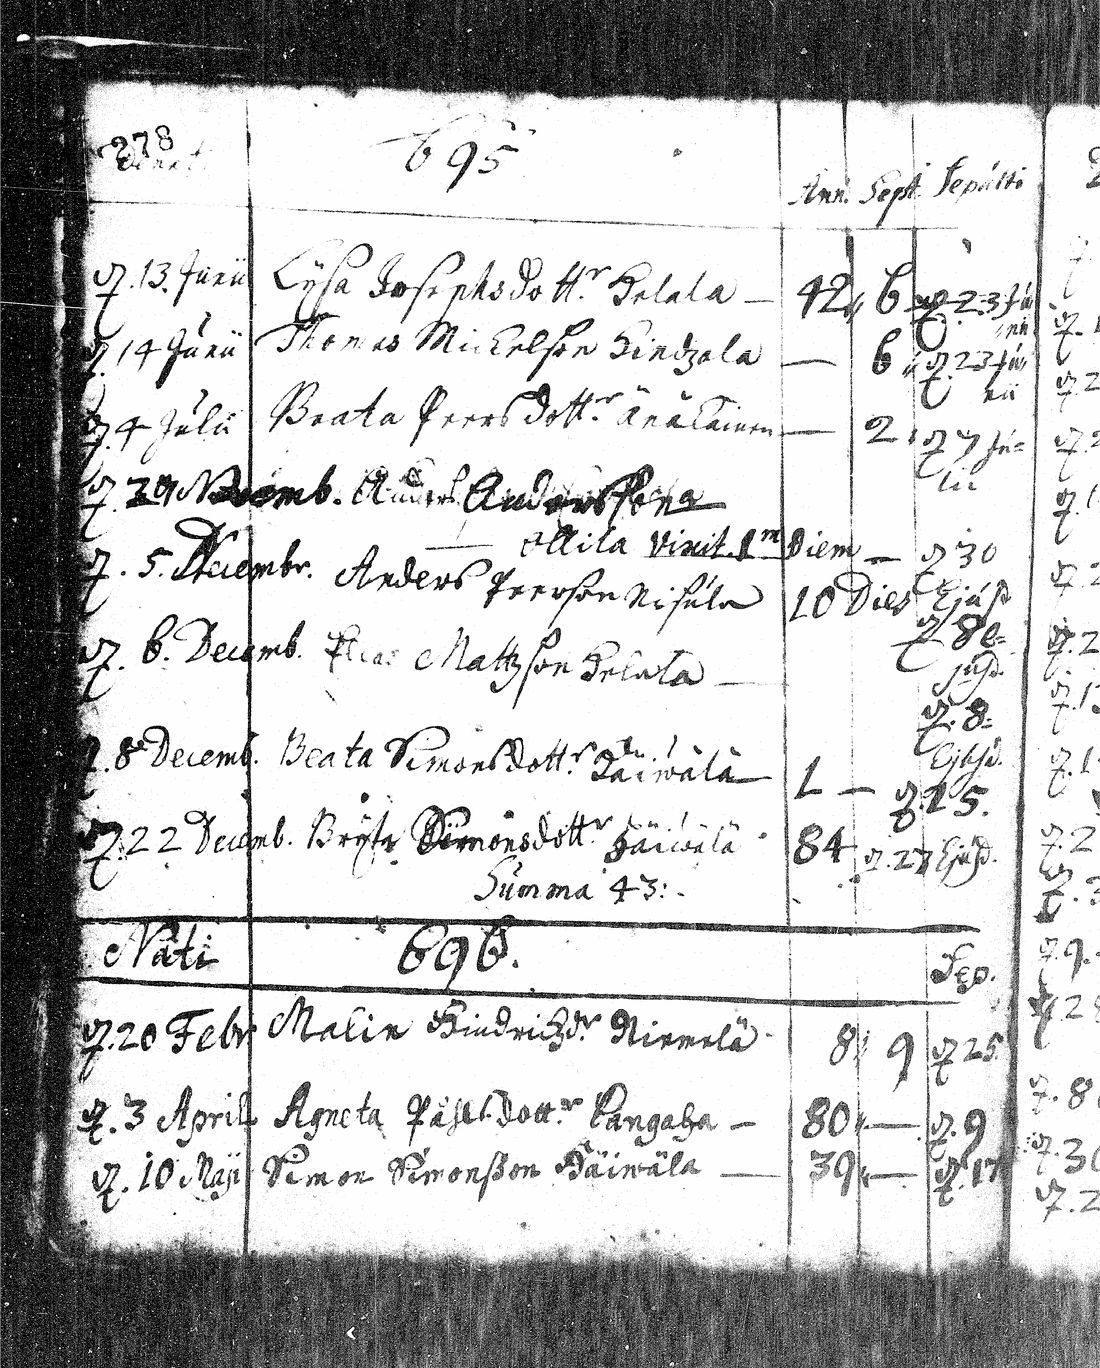 278
695
Ann. Sept. Sepulti
d. 13. Junii Lysa Josephsdott.r Kelala — 42 " 6 d. 23 Ju
nii
d. 14 Junii Thomas Mickelson Kindzala — 6 " d. 23 Ju
nii
d. 4 Julii Beata Peersdott.r — 2 d. 7 Ju=
lii
d. 29 Novemb. Anders Andersson
— Ollila vixit. 1m Diem — d. 30
d. 5. Decembr. Anders Peerson Nisula 10 Dies Ejusd
d. 8 e=
jusd.
d. 6. Decemb. Elias Mattzson Kelala —
d. 8=
Ejusd.
d. 8 Decemb. Beata Simonsdott.r Päiwälä — 1 — d. 15.
d. 22 Decemb. Simonsdott.r Päiwälä 84 d. 27 Ejusd.
Summa 43:.
Nati 696. Sep.
d. 20 Febr Malin Hindrichzd.r Niemelä 8 " 9 d. 25
d. 3 April Agneta Påhlsdott.r Kangaha — 80 " — d. 9
d. 10 Maji Simon Simonsson Päiwälä — 39 " — d. 17